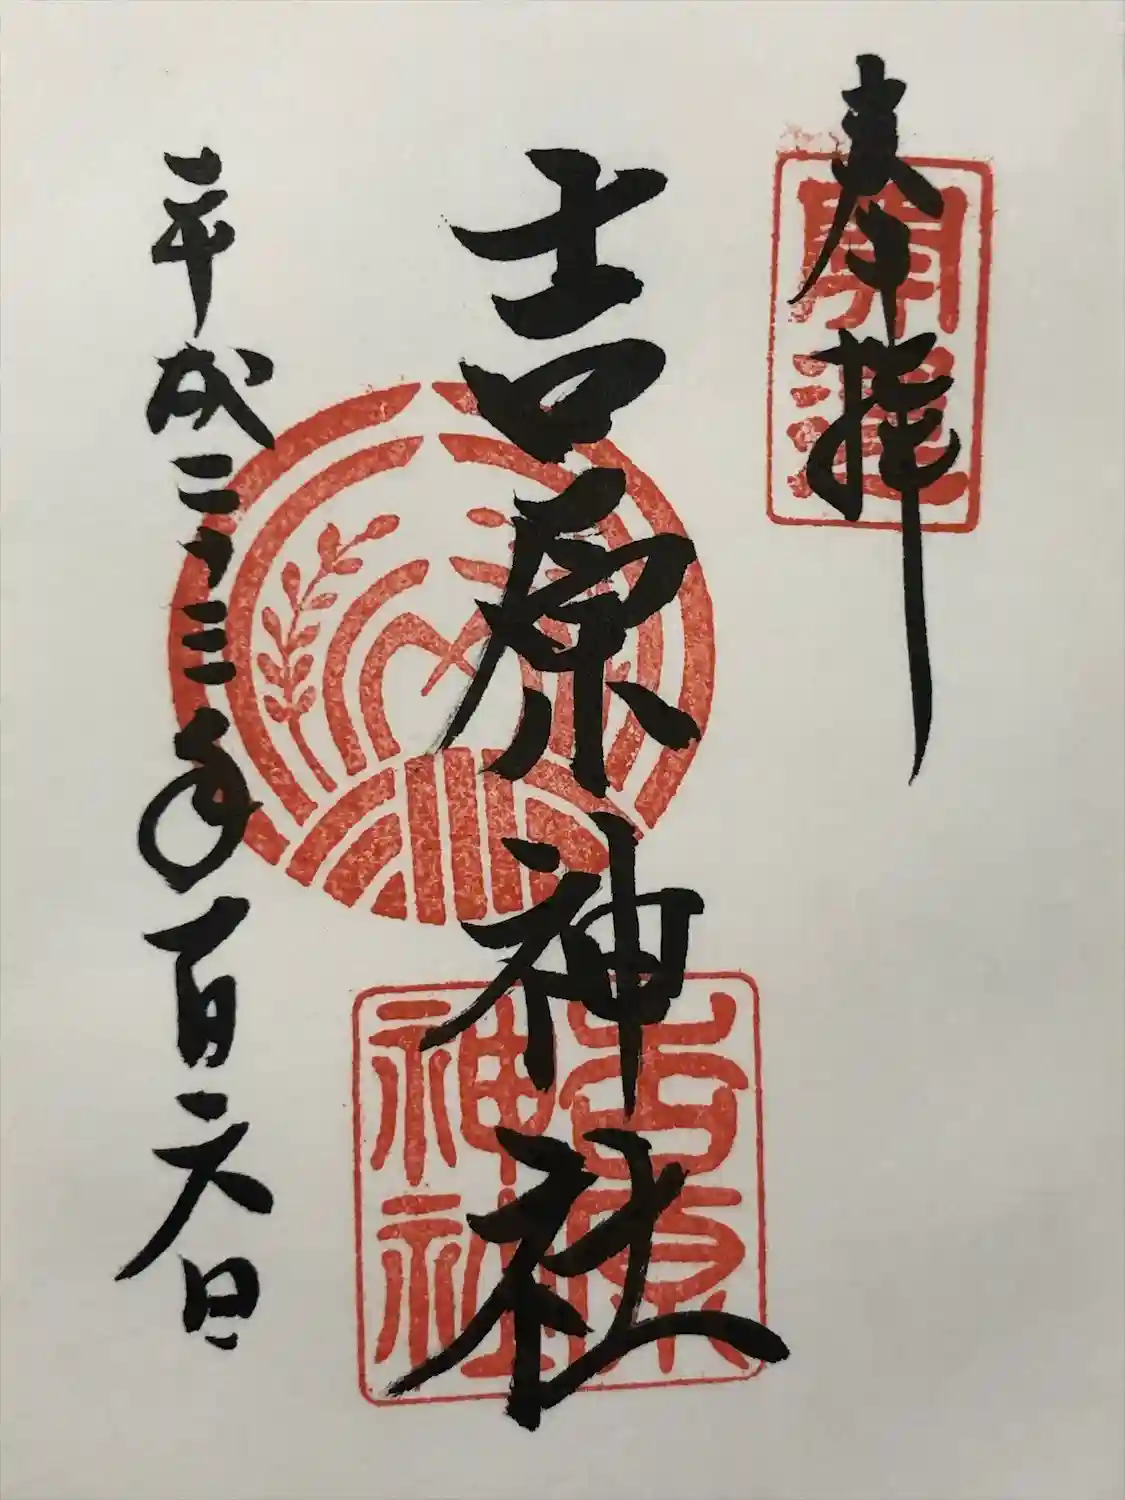 奉拝
開運
吉原神社
吉原
神社
平成二十三年一月六日